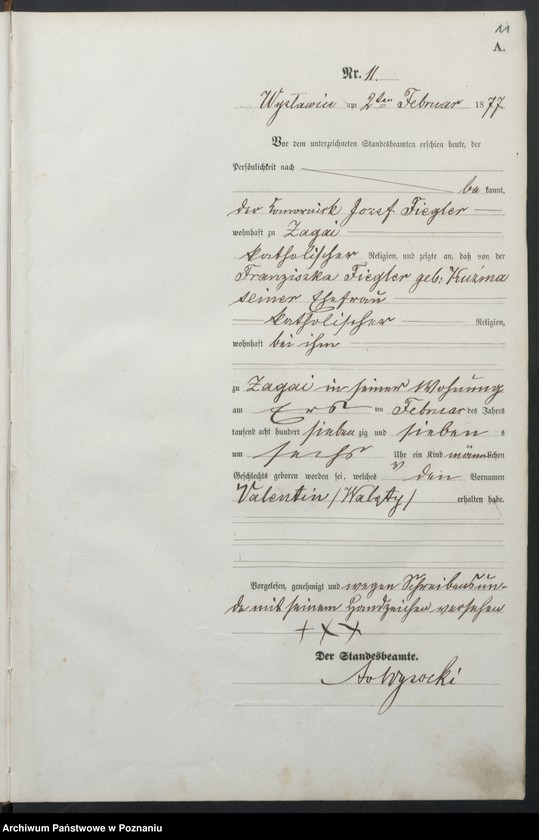 11
A.
Nr. 11.
Wysławice am 2ten Februar 1877
Vor dem unterzeichneten Standesbeamten erschien heute, der
Persönlichkeit nach
bekannt,
der Komornick Jozef Fiegler
wohnhaft zu Zagai
katholischer Religion, und zeigte an, daß von der
Franziszka Fiegler geb. Kuźma
seiner Ehefrau
katholischer Religion,
wohnhaft bei ihm
zu Zagai in seiner Wohnung
am Ers ten Februar des Jahres
tausend acht hundert sieben zig und sieben
um sechs Uhr ein Kind männlichen
Geschlechts geboren worden sei, welches den Vornamen
Valentin /Walęty/ erhalten habe.
Vorgelesen, genehmigt und wegen Schreibensun-
de mit seinem Handzeichen versehen
+ X X
Der Standesbeamte.
Wysocki
Archiwum Państwowe w Poznaniu